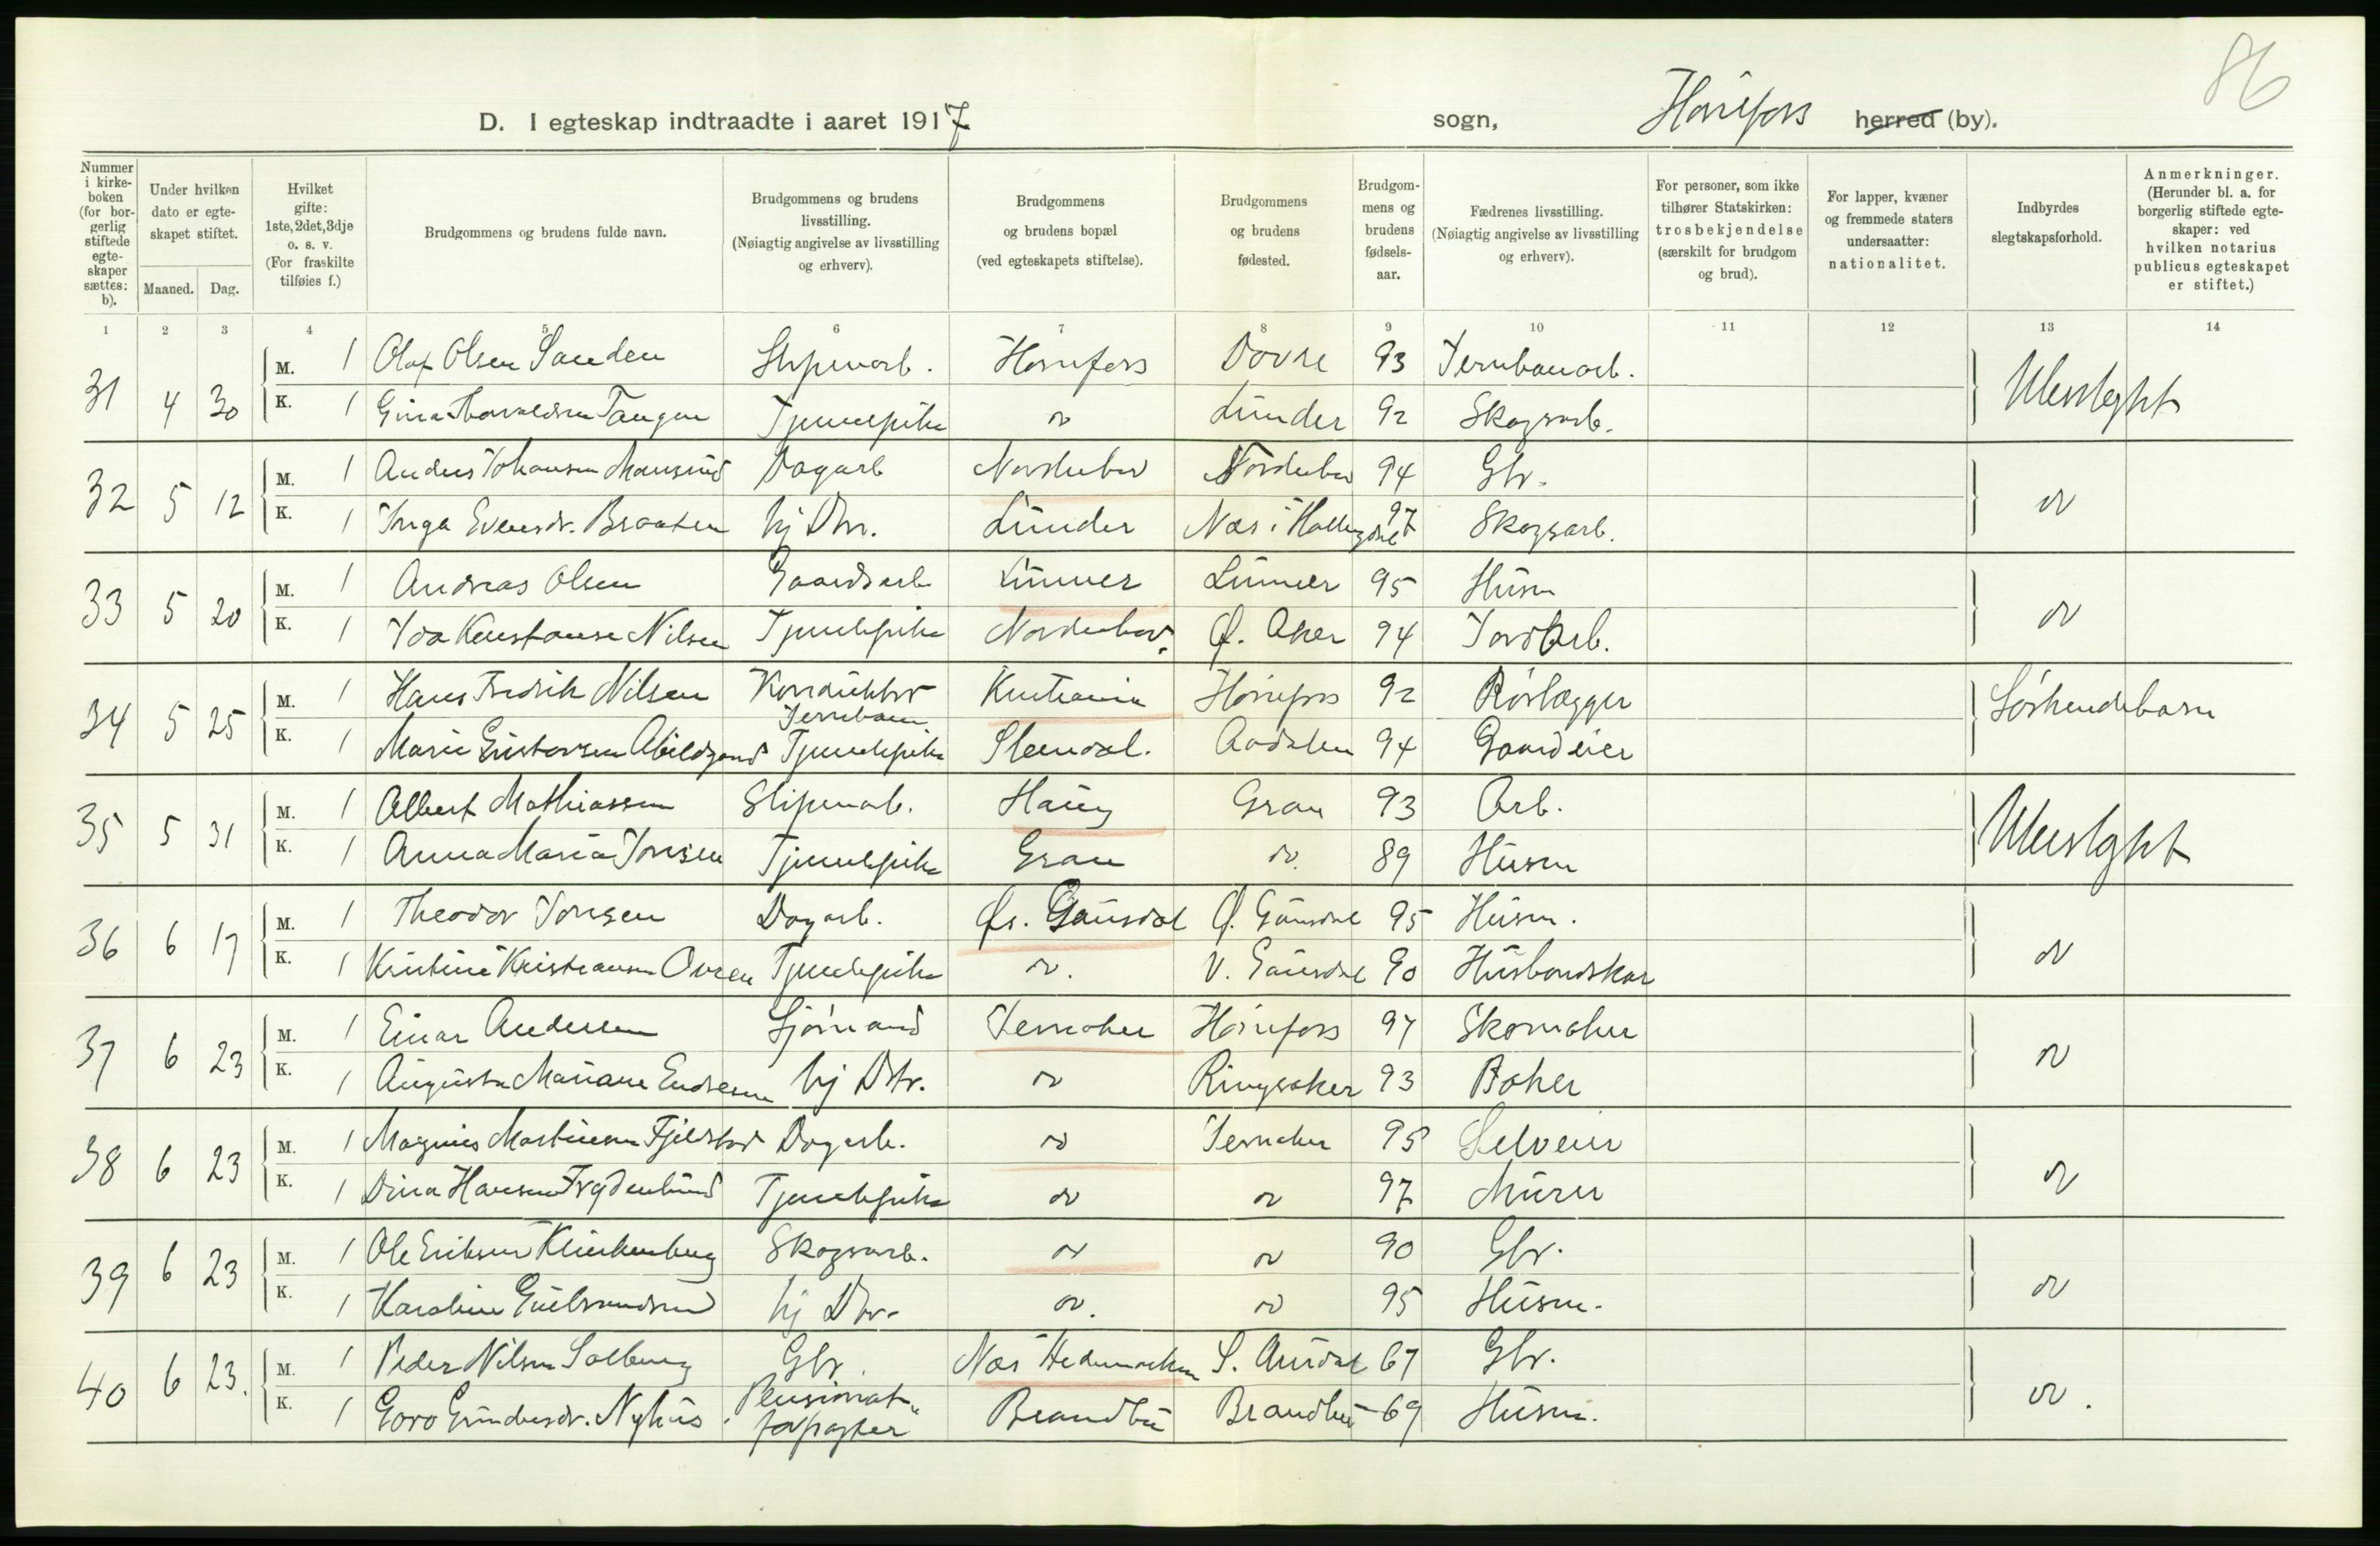 86
D. I egteskap indtraadte i aaret 1917 sogn, Hönefoss herred (by).
Nummer i kirke-boken (for bor-gerlig stiftede egte-skaper sættes: b).
Under hvilken dato er egte-skapet stiftet.
Maaned. Dag.
Hvilket gifte: 1ste, 2det, 3dje o. s. v. (For fraskilte tilføies f.)
Brudgommens og brudens fulde navn.
Brudgommens og brudens livsstilling. (Nøiagtig angivelse av livsstilling og erhverv).
Brudgommens og brudens bopæl (ved egteskapets stiftelse).
Brudgommens og brudens fødested.
Brudgom-mens og brudens fødsels-aar.
Fædrenes livsstilling. (Nøiagtig angivelse av livsstilling og erhverv).
For personer, som ikke tilhører Statskirken: trosbekjendelse (særskilt for brudgom og brud).
For lapper, kvæner og fremmede staters undersaatter: nationalitet.
Indbyrdes slegtskapsforhold.
Anmerkninger. (Herunder bl. a. for borgerlig stiftede egte-skaper: ved hvilken notarius publicus egteskapet er stiftet.)
1 2 3 4 5 6 7 8 9 10 11 12 13 14
31 4 30 M. 1 Olaf Olsen Sanden Sliperiarb. Hönefoss Dovre 93 Jernbanearb. Ubeslegtet
K. 1 Gina Thorvaldsen Tangen Tjenestepike do Lunder 92 Skogsarb.
32 5 12 M. 1 Anders Johansen Dagarb Norderhov Norderhov 94 Gbr. do
K. 1 Inga Evensdr. Braaten hj Dtr. Lunder Nes i Hallingdal 97 Skogsarb.
33 5 20 M. 1 Andreas Olsen Gaardsarb Lunner Lunner 95 Husm do
K. 1 Ida Konstanse Nilsen Tjenestepike Norderhov. Ø. Aker 94 Jordarb.
34 5 25 M. 1 Hans Fredrik Nilsen Konduktør Jernbane Kristiania Hönefoss 92 Rörlægger Söskendebarn
K. 1 Marie Gustavsen Abildgaard Tjenestepike Steindal. Aadalen 94 Gaardeier
35 5 31 M. 1 Albert Mathiassen Sliperiarb. Haug Gran 93 Arb. Ubeslegtet
K. 1 Anna Maria Jonsen Tjenestepike Gran do. 89 Husm
36 6 17 M. 1 Theodor Jonsen Dagarb. Øs. Gausdal Ø. Gausdal 95 Husm. do
K. 1 Kristine Kristiansen Tjenestepike do. V. Gausdal 90 Husbondskar
37 6 23 M. 1 Einar Andersen Sjömand Jevnaker Hönefoss 97 Skomaker do
K. 1 Augusta Mariane Endresen hj Dtr. do Ringsaker 93 Baker
38 6 23 M. 1 Magnus Martinsen Fjeldstad Dagarb. do Jevnaker 95 Selveier do
K. 1 Dina Hansen Frydenlund Tjenestepike do do 97 Murer
39 6 23 M. 1 Ole Eriksen Klinkenberg Skogsarb. do do 90 Gbr. do
K. 1 Karoline Gulbrandsen hj Dtr. do. do 95 Husm.
40 6 23. M. 1 Peder Nilsen Solberg Gbr. Nes Hedemarken S. Aurdal 67 Gbr. do.
K. 1 Goro Gundersdr. Nyhus Pensionat forpagter Brandbu Brandbu 69 Husm.